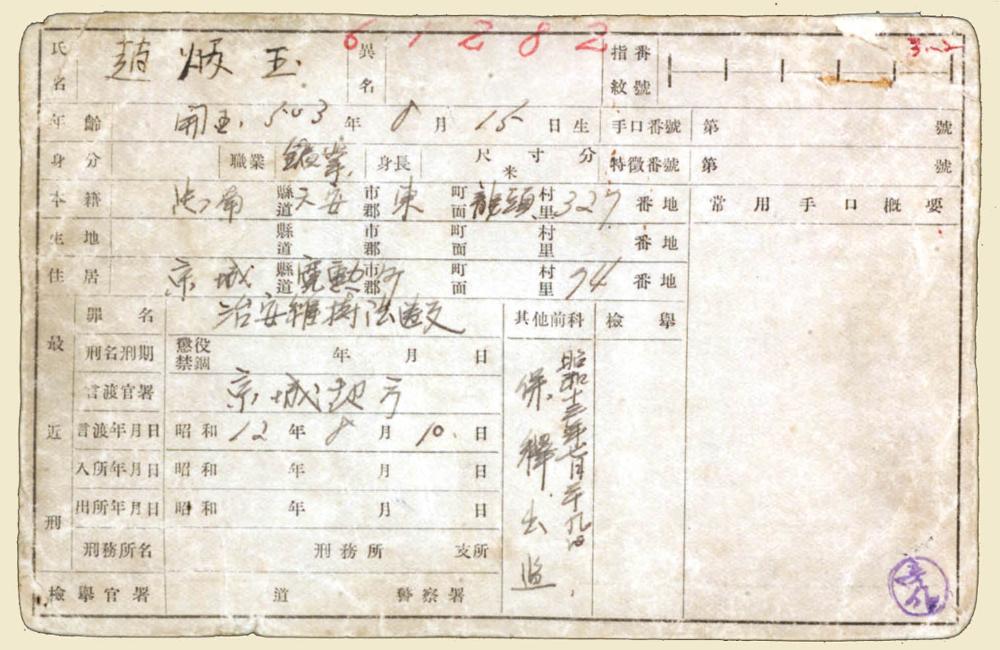 61282
氏名 趙炳玉 異名 指紋番號 3.-2
年齡 開国 503年 8月 15日生 手口番號 第 號
身分 職業 鑛業 身長 尺寸分 米 特徵番號 第 號
本籍 忠南 縣道 天安 市郡 東 町面 龍頭 村里 327 番地 常用手口概要
生地 縣道 市郡 町面 村里 番地
住居 京城 縣道 寬勳町 市郡 町面 村里 74 番地
最近刑
罪名 治安維持法違反 其他前科 檢擧
刑名刑期 懲役 禁錮 年 月 日
言渡官署 京城
言渡年月日 昭和 12年 8月 10.日
入所年月日 昭和 年 月 日
出所年月日 昭和 年 月 日
刑務所名 刑務所 支所
檢擧官署 道 警察署
昭和十三年七月二十九日
保釋出監